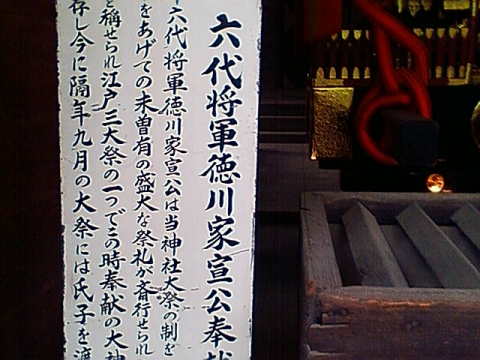 六代将軍徳川家宣公奉献
六代将軍徳川家宣公は当神社大祭の制を
をあげての未曽有の盛大な祭礼が斎行せられ
と稱せられ江戸三大祭の一つでこの時奉献の大神
存し今に隔年九月の大祭には氏子を渡